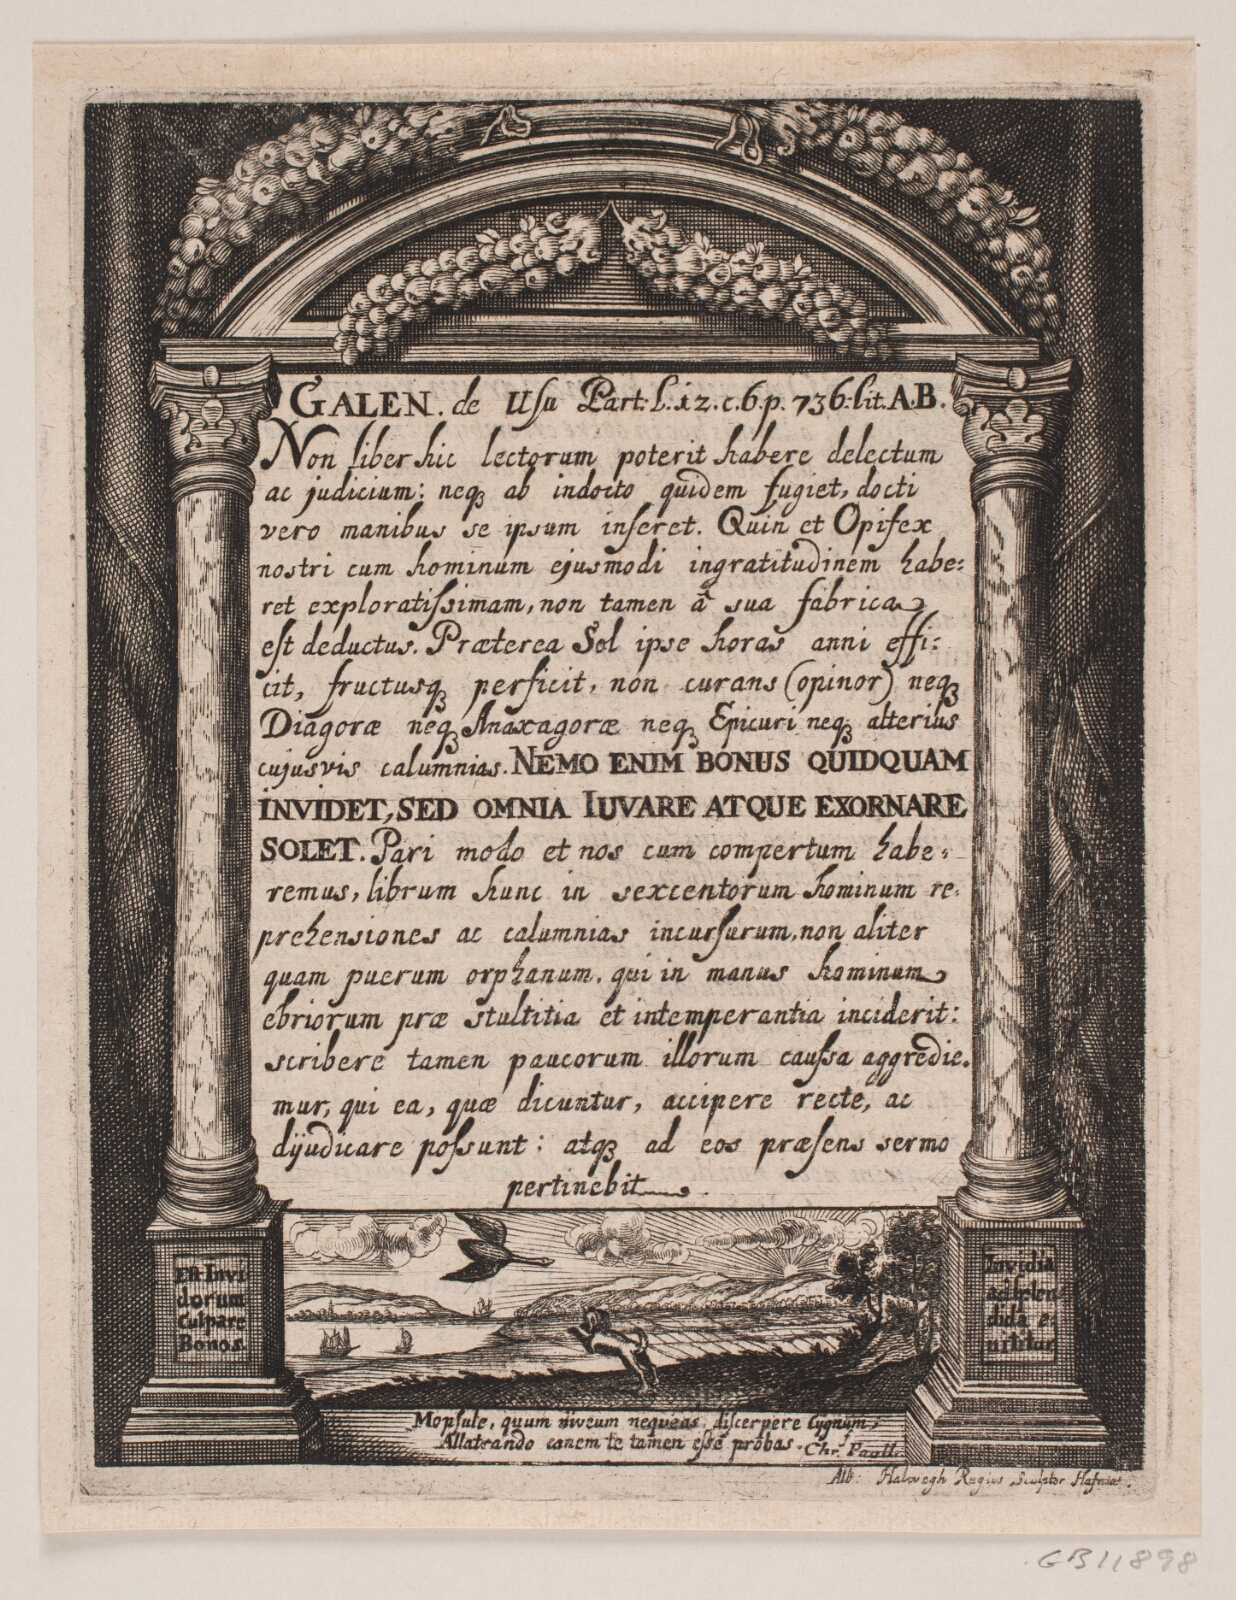 GALEN. de Usu Part: l. 12. c. 6. p. 736. lit. A.B.
Non liber hic lectorum poterit habere delectum
ac judicium: neqꝫ ab indocto quidem fugiet, docti
vero manibus se ipsum inferet. Quin et Opifex
nostri cum hominum ejusmodi ingratitudinem habe:
ret exploratissimam, non tamen â sua fabrica
est deductus. Præterea Sol ipse horas anni effi:
cit, fructusqꝫ perficit, non curans (opinor) neqꝫ
Diagoræ neqꝫ Anaxagoræ neqꝫ Epicuri neqꝫ alterius
cujusvis calumnias. NEMO ENIM BONUS QUIDQUAM
INVIDET, SED OMNIA IUVARE ATQUE EXORNARE
SOLET. Pari modo et nos cum compertum habe:
remus, librum hunc in sexcentorum hominum re:
prehensiones ac calumnias incursurum, non aliter
quam puerum orphanum, qui in manus hominum
ebriorum præ stultitia et intemperantia inciderit:
scribere tamen paucorum illorum caussa aggredie:
mur, qui ea, quæ dicuntur, accipere recte, ac
dijudicare possunt: atqꝫ ad eos præsens sermo
pertinebit.
Est Invi
dorum
Culpare
Bonos.
Invidia
ad splen
dida e:
nititur
Mopsule, quum niveum nequeas discerpere Cygnum,
Allatrando canem te tamen esse probas. Chr. Paulli
Alb: Halwegh Regius Sculptor Hafniæ.
GB11898